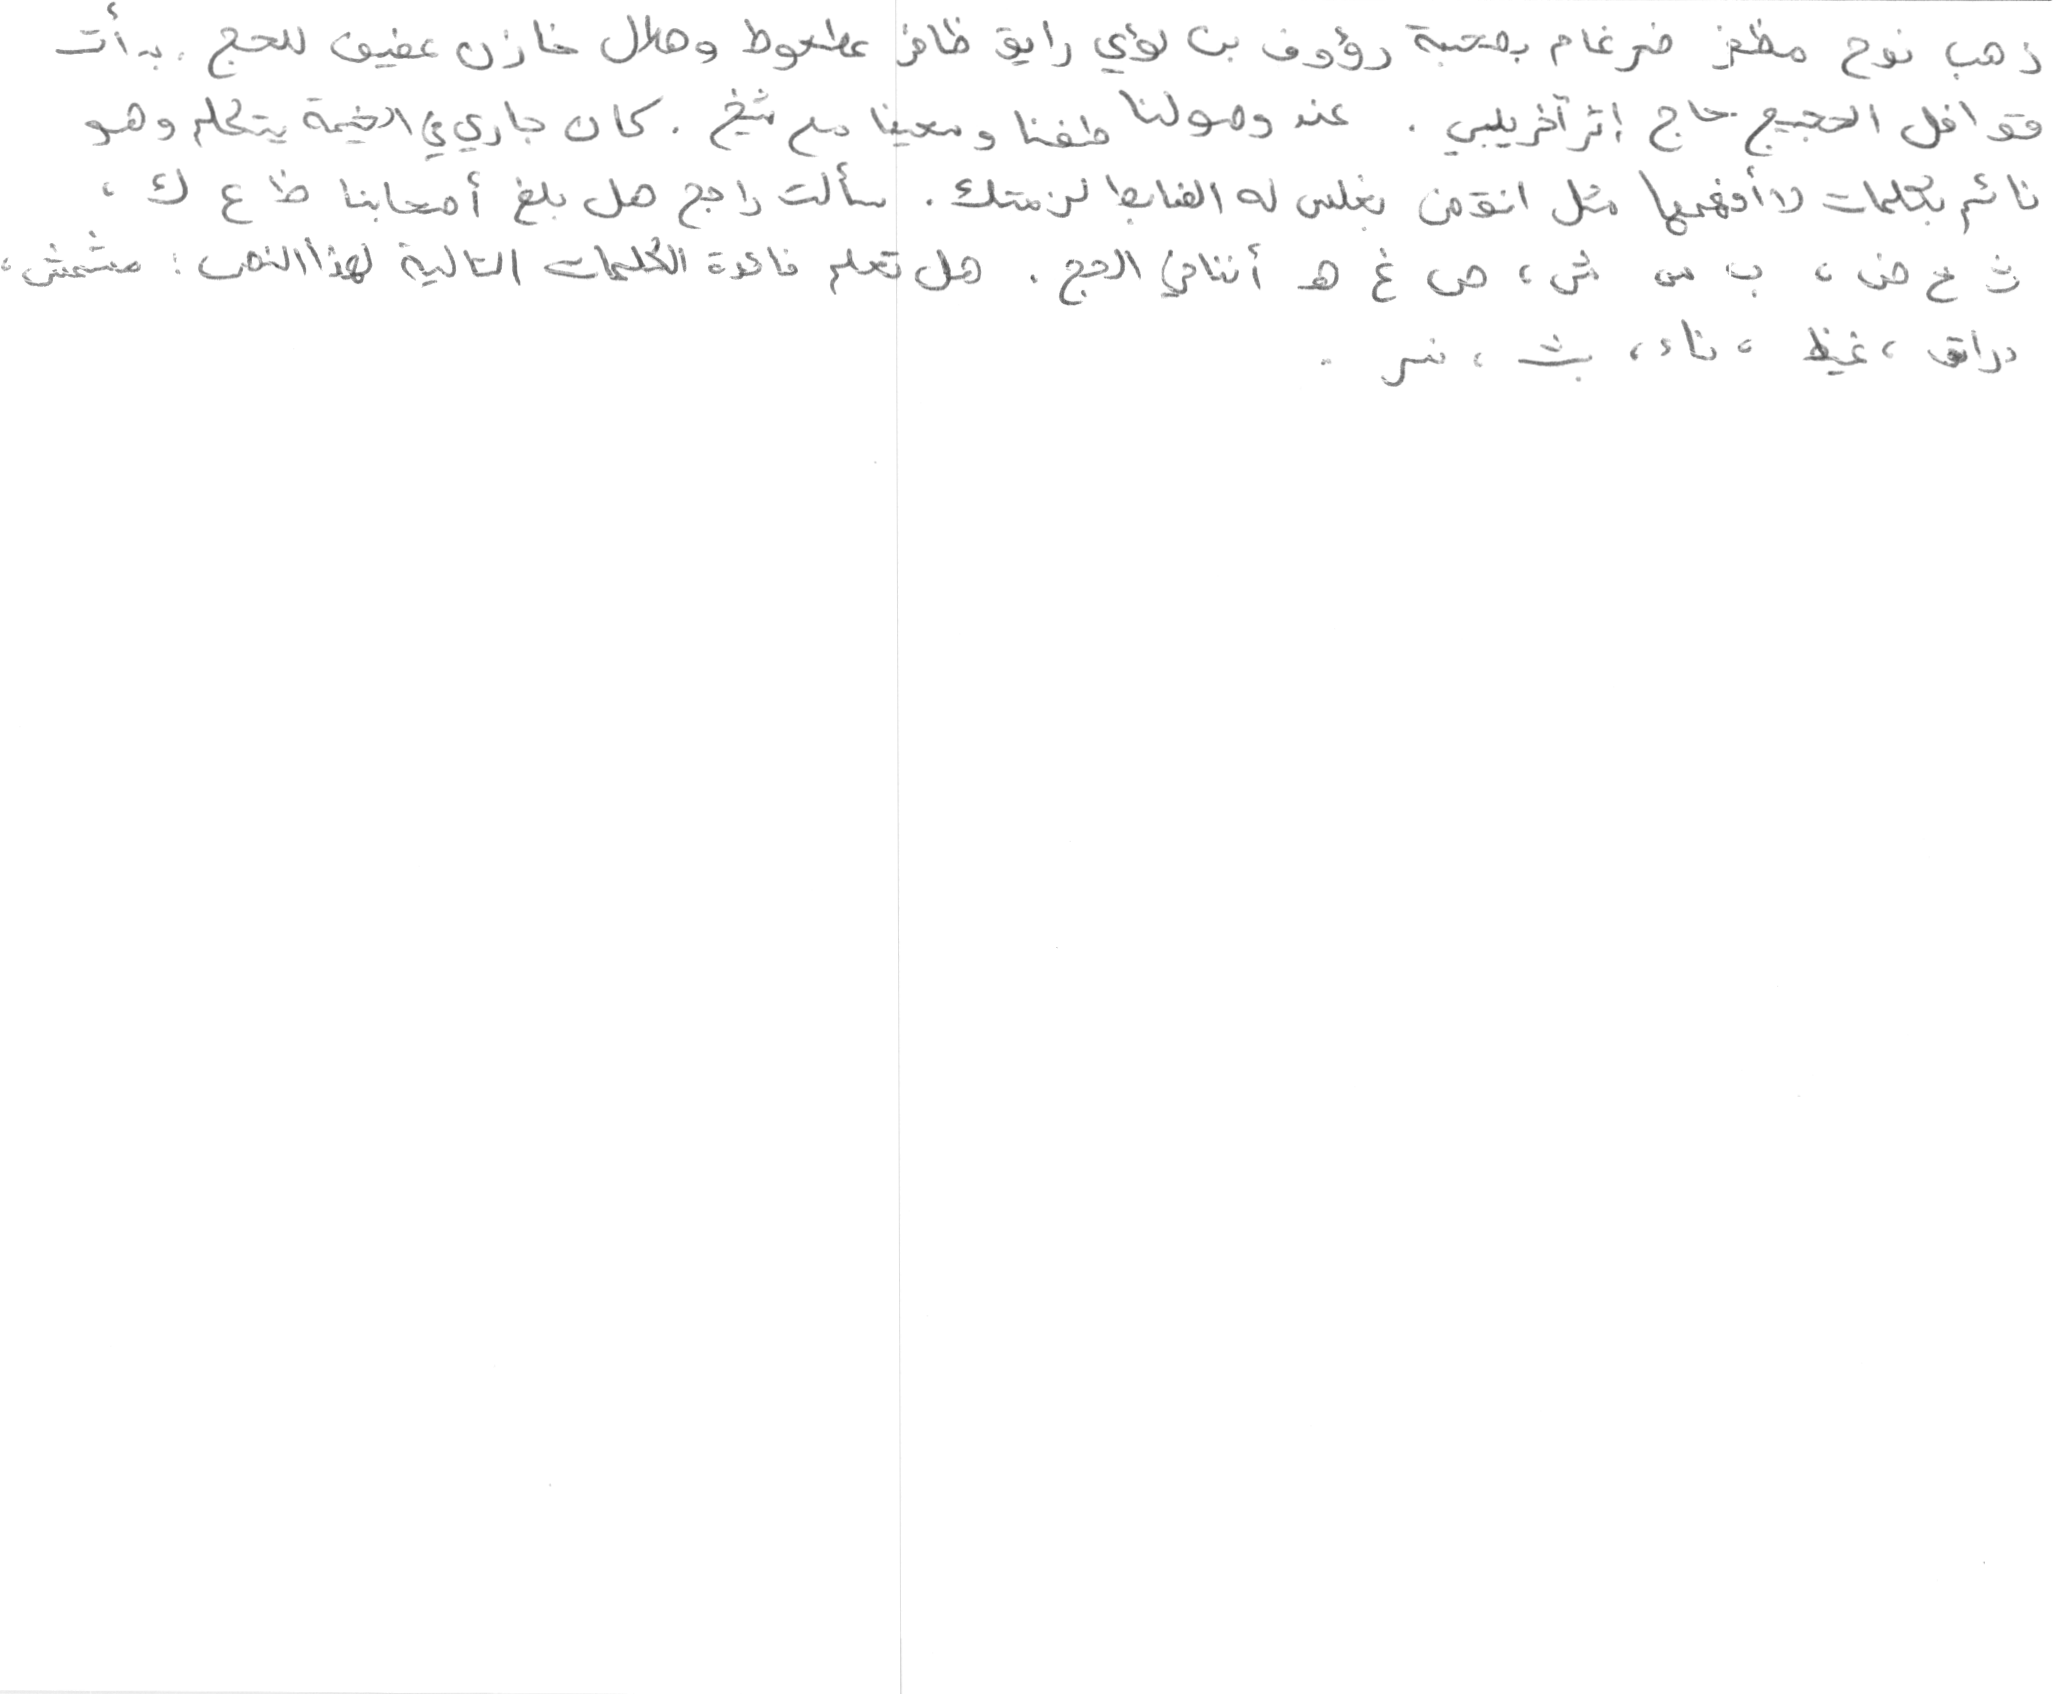 ذهب نوح مظفر ضرغام بصحبة رؤوف بن لؤي رايق ظافر عطعوط وهلال خازن عفيف للحج . بدأت
قوافل الحجيج حاج إثر آخر يلبي . عند وصولنا طفنا وسعينا مع شيخ . كان جاري في الخيمة يتكلم وهو
نائم بكلمات لا أفهمها مثل انوض بغلس له الضابط لزمتك . سألت راجح هل بلغ أصحابنا ظ ع ك ،
ث خ ض ، ب س ش ، ص غ هـ أنناafي الحج . هل تعلم فائدة الكلمات التالية لهذا النص : مشمش ،
دراق ، غيظ ، ناء ، بث ، نسر .